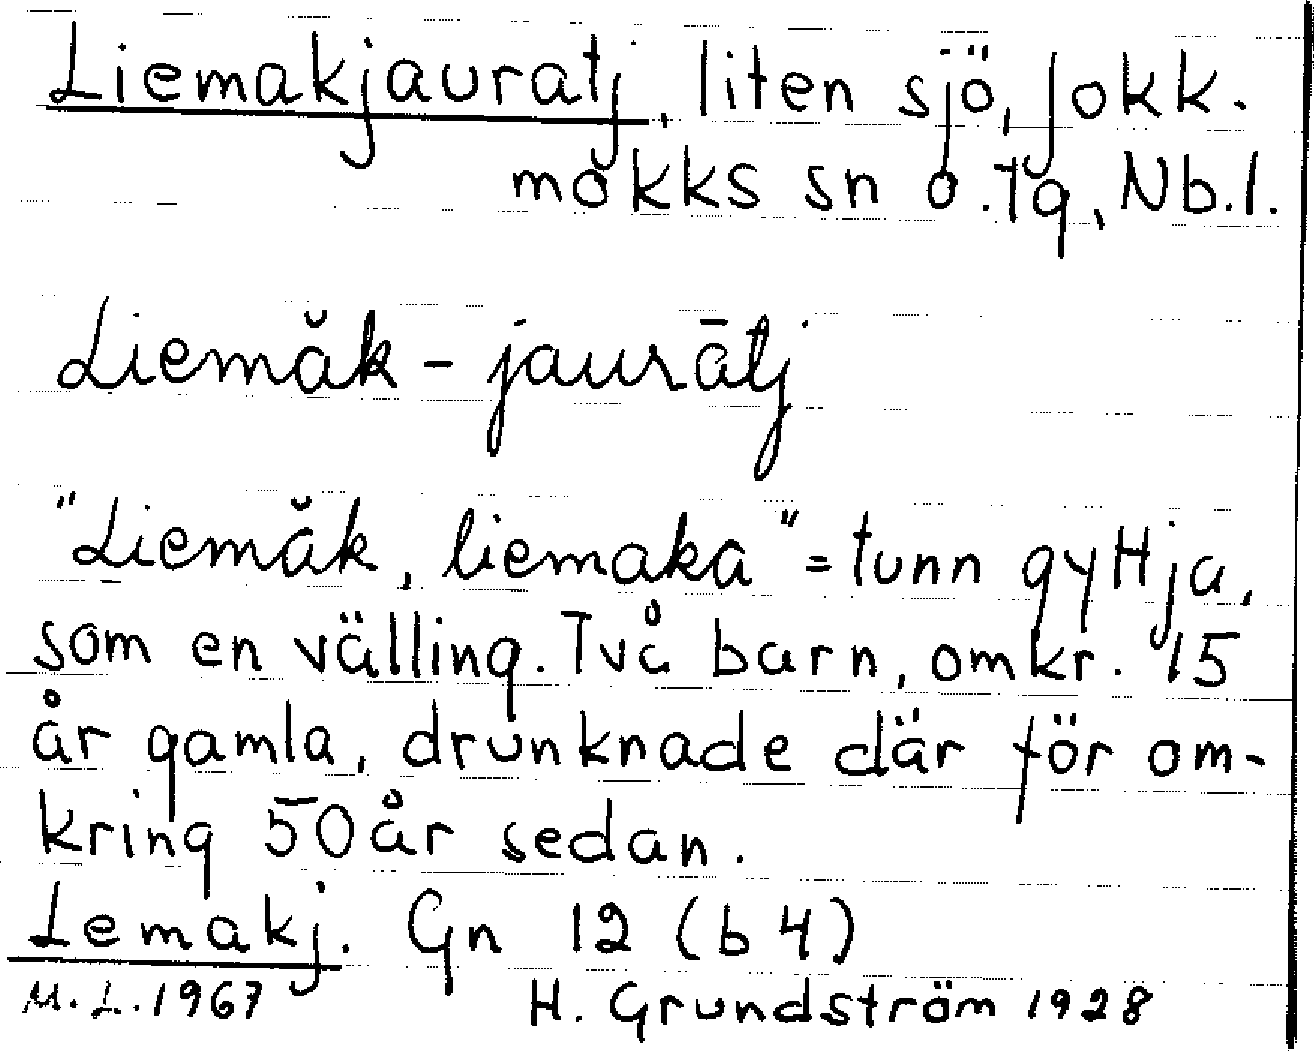 Liemakjauratj, liten sjö, Jokk-
mokks sn o. tg, Nb.l.
Liemăk - jaurātj
"Liemăk, liemaka" = tunn gyttja,
som en välling. Två barn, omkr. 15
år gamla, drunknade där för om-
kring 50 år sedan.
Lemakj. Gn 12 (b 4)
M. L. 1967 H. Grundström 1928